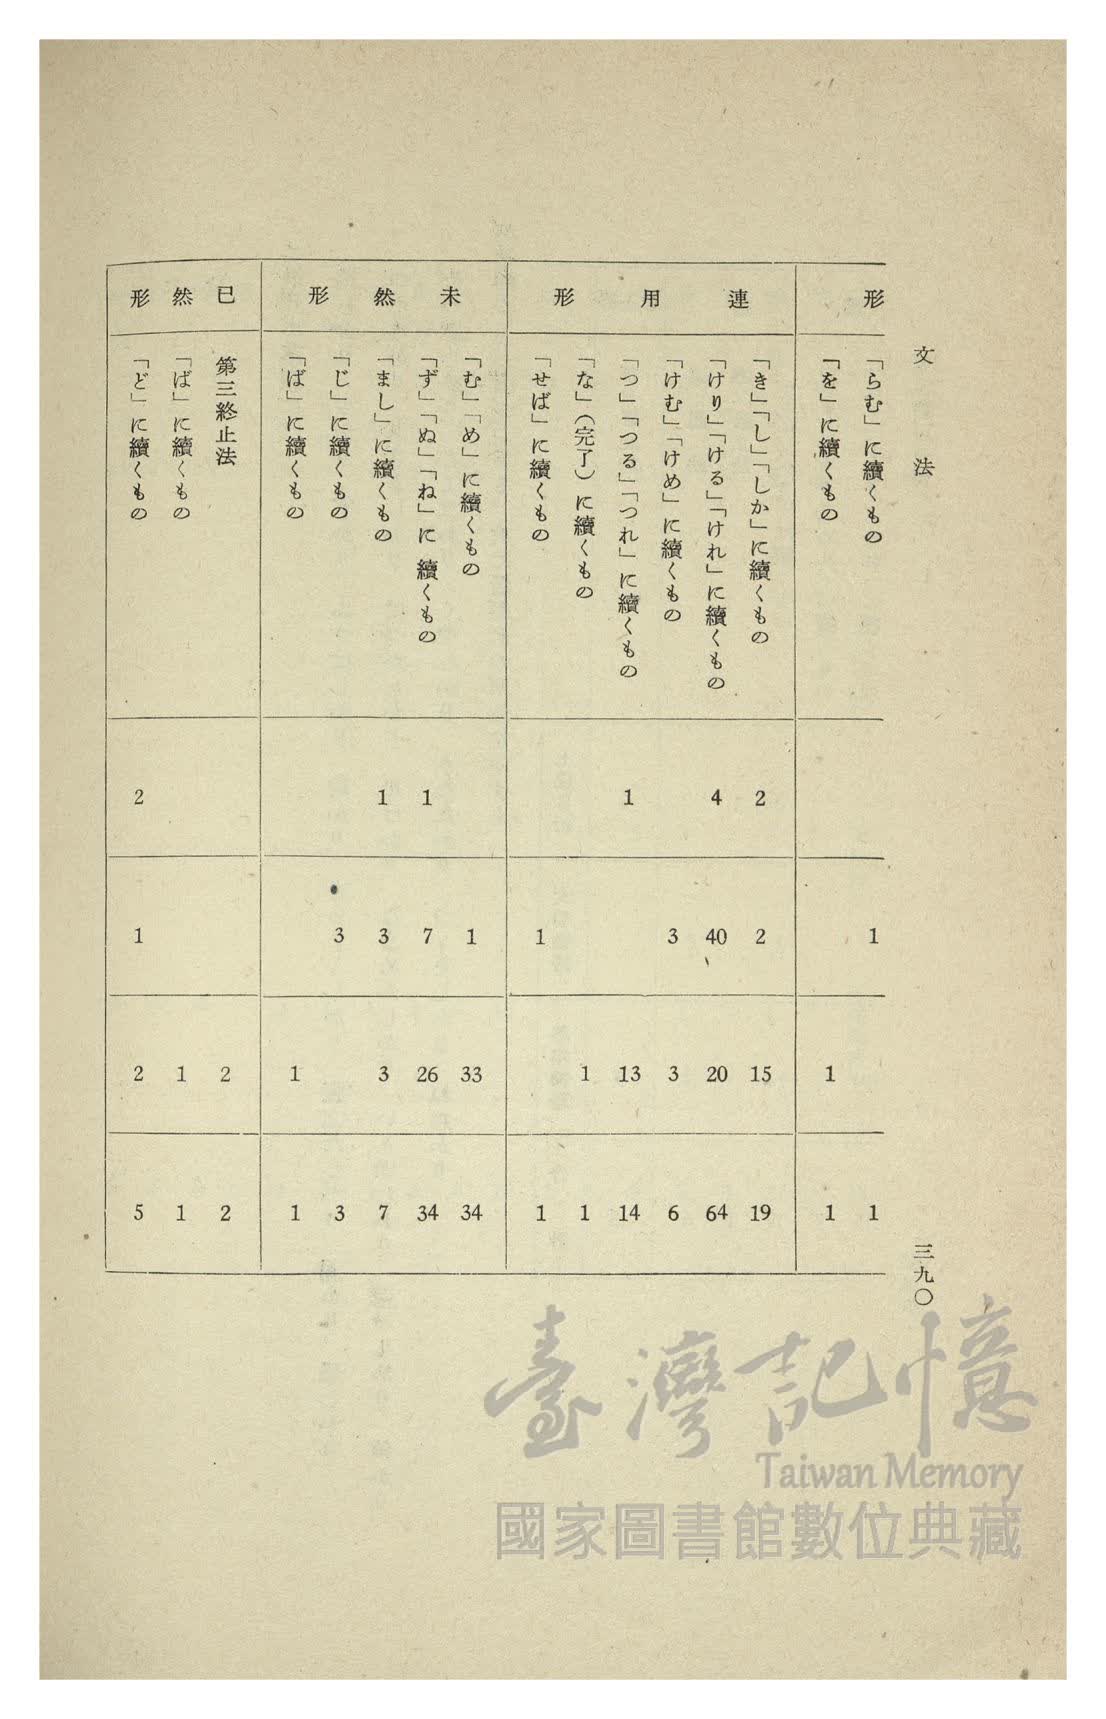 文法
三九〇
形
「らむ」に續くもの 1 1
「を」に續くもの 1 1
連用形
「き」「し」「しか」に續くもの 2 2 15 19
「けり」「ける」「けれ」に續くもの 4 40 20 64
「けむ」「けめ」に續くもの 3 3 6
「つ」「つる」「つれ」に續くもの 1 13 14
「な」（完了）に續くもの 1 1
「せば」に續くもの 1 1
未然形
「む」「め」に續くもの 1 33 34
「ず」「ぬ」「ね」に續くもの 1 7 26 34
「まし」に續くもの 1 3 3 7
「じ」に續くもの 3 3
「ば」に續くもの 1 1
已然形
第三終止法 2 2
「ば」に續くもの 1 1
「ど」に續くもの 2 1 2 5
臺灣記憶
Taiwan Memory
國家圖書館數位典藏